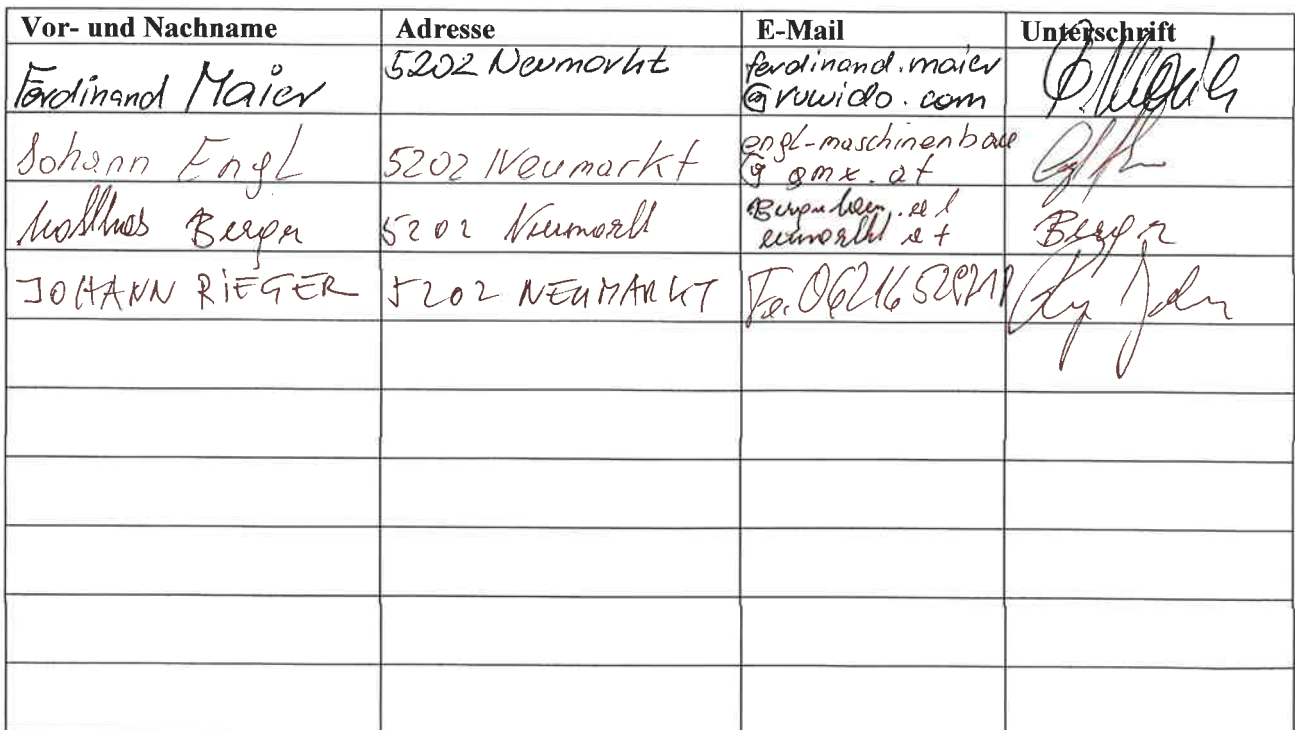 Vor- und Nachname Adresse E-Mail Unterschrift
Ferdinand Maier 5202 Neumarkt ferdinand.maier
@ruwido.com
Johann Engl 5202 Neumarkt engl-maschinenbau
@gmx.at
Berger 5202 Neumarkt Berger
JOHANN RIEGER 5202 NEUMARKT